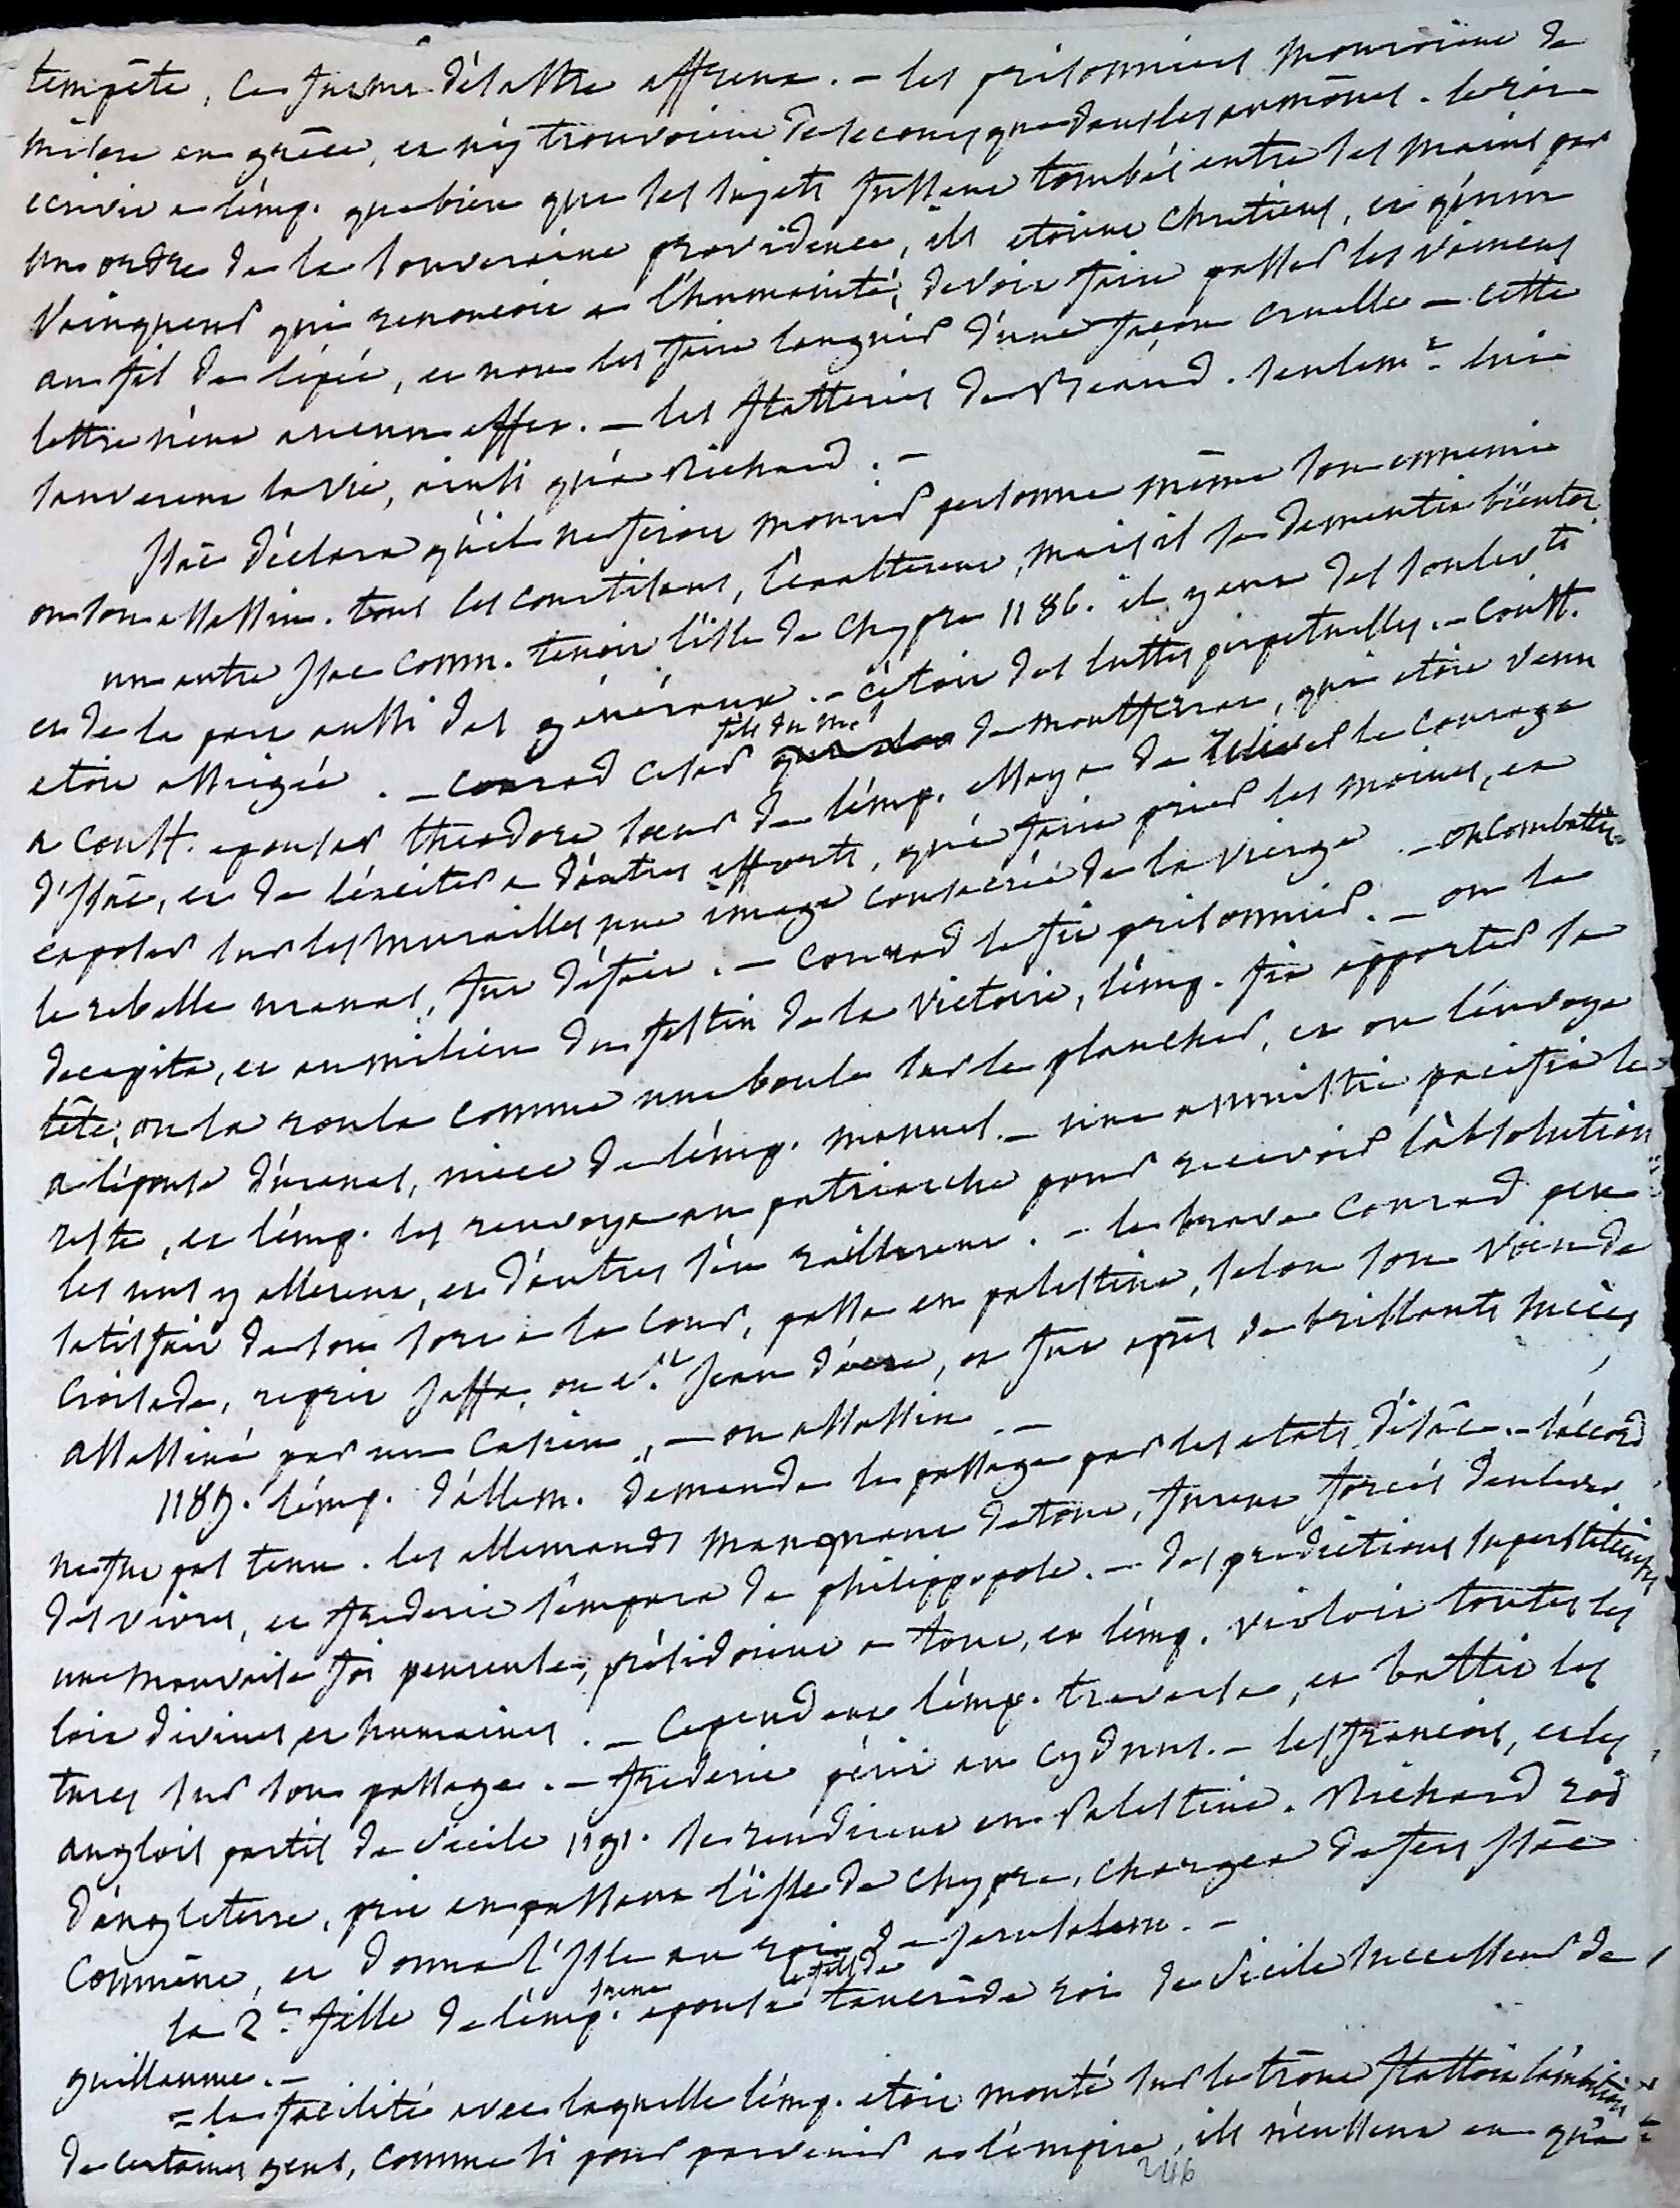 tempête, ce fut un désastre affreux. – les prisonniers mouroient de
misère en grèce, et n'y trouvoient de secours que dans les aumônes. le roi
ecrivit a l'emp. que bien que ses sujets fussent tombés entre ses mains par
un ordre de la souveraine providence, ils etoient chretiens, et qu'un
vainqueur qui renoncoit a l'humanité, devoit faire passer les vaincus
au fil de l'épée, et non les faire languir d'une façon cruelle – cette
lettre n'eut aucun effet. – les flatteries de Beaud. seulem.t lui
sauverent la vie, ainsi qu'a Richard. –
Isâc déclara qu'il ne feroit mourir personne même son ennemi
ou son assassin. tous les courtisans, l'exalterent, mais il se dementit bientôt
un autre Isac Comn. tenoit l'isle de Chypre 1186. il y eut des soulev.ts
et de la part aussi des généraux. – c'étoit des luttes perpetuelles. – Const.
etoit assiégée. – Conrad cesar fils du m.is de montferrat, qui etoit venu
a Const. epouser theodore soeur de l'emp. essaya de relever le courage
d'Isâc, et de l'exciter a d'autres efforts, qu'a faire prier les moines, et
exposer sur les murailles une image consacrée de la vierge. – on combattit
le rebelle uranas, fut défait. – Conrad le fit prisonnier. – on le
decapita, et au milieu du festin de la victoire, l'emp. fit apporter sa
tête, on la roula comme une boule sur le plancher, et on l'envoya
a l'epouse d'uranas, niece de l'emp. manuel. – une amnistie pacifia le
reste, et l'emp. les renvoya au patriarche pour recevoir l'absolution
les uns y allerent, et d'autres s'en raillerent. – le brave Conrad peu
satisfait de son sort a la cour, passa en palestine, selon son voeu de
croisade, reprit Jaffa, ou S.t Jean d'acre, et fut après de brillants succès
assassiné par un casien, – ou assassin. –
1189. l'emp. d'allem. demanda le passage par les etats d'isâc. – l'accord
ne fut pas tenu. les allemands manquant de tout, furent forcés d'enlever
des vivres, et frederic s'empara de philippopole. – des predictions superstitieuses
une mauvaise foi , présidoient a tout, et l'emp. violoit toutes les
lois divines et humaines. – Cependant l'emp. traversa, et battit les
turcs sur son passage. – frederic périt au Cydnus. – les françois, et les
anglois partis de sicile 1191. se rendirent en Palestine. Richard roi
d'angleterre, prit en passant l'isle de Chypre, chargea de fers Isâc
Comnène, et donna l'Isle au roi de Jerusalem. –
la 2.e fille de l'emp. Irene epousa le fils de tancrède roi de Sicile successeur de
guillaume. –
= la facilité avec laquelle l'emp. etoit monté sur le trône flattoit l'ambition
de certaines gens, comme si pour parvenir a l'empire, ils n'eussent eu qu'a
246